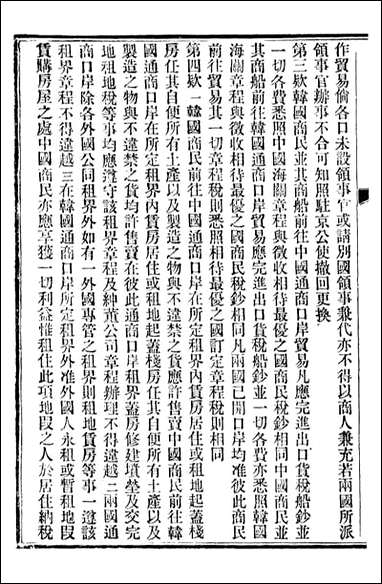 作貿易倘各口未設領事官或請別國領事兼代亦不得以商人兼充若兩國所派
領事官辦事不合可知照駐京公使撤回更換
第三欵韓國商民並其商船前往中國通商口岸貿易凡應完進出口貨稅船鈔並
一切各費悉照中國海關章程與徵收相待最優之國商民稅鈔相同中國商民並
其商船前往韓國通商口岸貿易應完進出口貨稅船鈔並一切各費亦悉照韓國
海關章程與徵收相待最優之國商民稅鈔相同凡兩國已開口岸均准彼此商民
前往貿易其一切章程稅則悉照相待最優之國訂定章程稅則相同
第四欵一韓國商民前往中國通商口岸在所定租界內賃房居住或租地起蓋棧
房任其自便所有土產以及製造之物與不違禁之貨應許售賣中國商民前往韓
國通商口岸在所定租界內賃房居住或租地起蓋棧房任其自便所有土產以及
製造之物與不違禁之貨均許售賣在彼此通商口岸租界蓋房修建墳塋及交完
地租地稅等事均應遵守該租界章程及紳董公司章程辦理不得違越二兩國通
商口岸除各外國公同租界外如有一外國專管之租界則租地賃房等事一遵該
租界章程不得違越三在韓國通商口岸所定租界外准外國人永租或暫租地段
賃購房屋之處中國商民亦應享獲一切利益惟租住此項地段之人於居住納稅